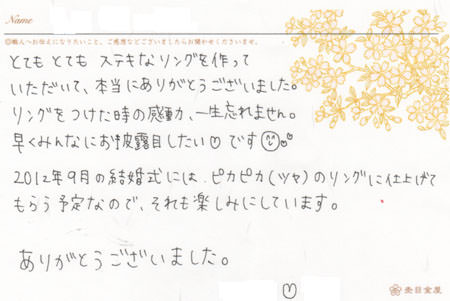 Name
◎職人へお伝えになりたいこと、ご感想などございましたらお聞かせくださいませ。
とても とても ステキなリングを作って
いただいて、本当にありがとうございました。
リングをつけた時の感動、一生忘れません。
早くみんなにお披露目したい♡です
2012年9月の結婚式には、ピカピカ(ツヤ)のリングに仕上げて
もらう予定なので、それも楽しみにしています。
ありがとうございました。
♡
杢目金屋